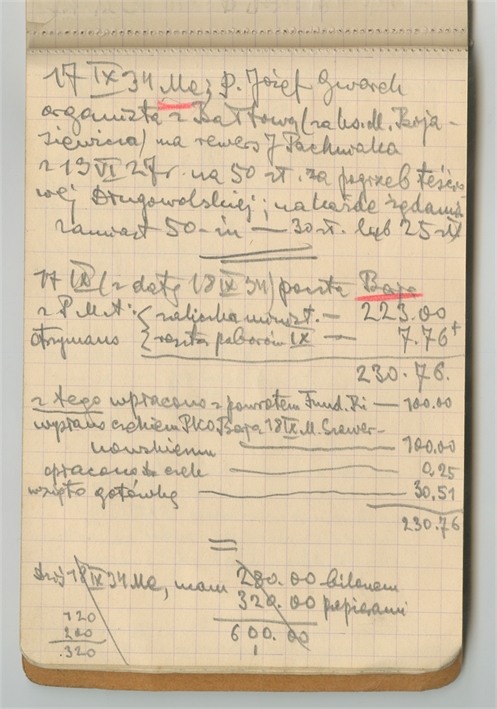 17 IX 34 Me; p. Józef Gwarek
organista z Bałtowa (za ks. M. Boja-
siewicza) na rewers J Pachniaka
z 19 VI 27 r. na 50 zł. za pogrzeb teścio-
wej Długowolskiej; na każde żądanie
zamiast 50-iu — 30 zł. lub 25 zł
17 IX (z datą 18 IX 34) poszta
z P.M.A: zaliczka — 223.00
otrzymano reszta poborów IX — 7.76+
230.76.
z tego wpłacono z powrotem Fund. — 100.00
wysłano czekiem PKO 18 IX M.
nowskiemu — 100.00
opłacono czek — 0.25
wzięto gotówkę — 30.51
230.76
dziś 18 IX 34 Me, mam 280.00 bilonem
320.00 papierami
600.00
120
200
.320